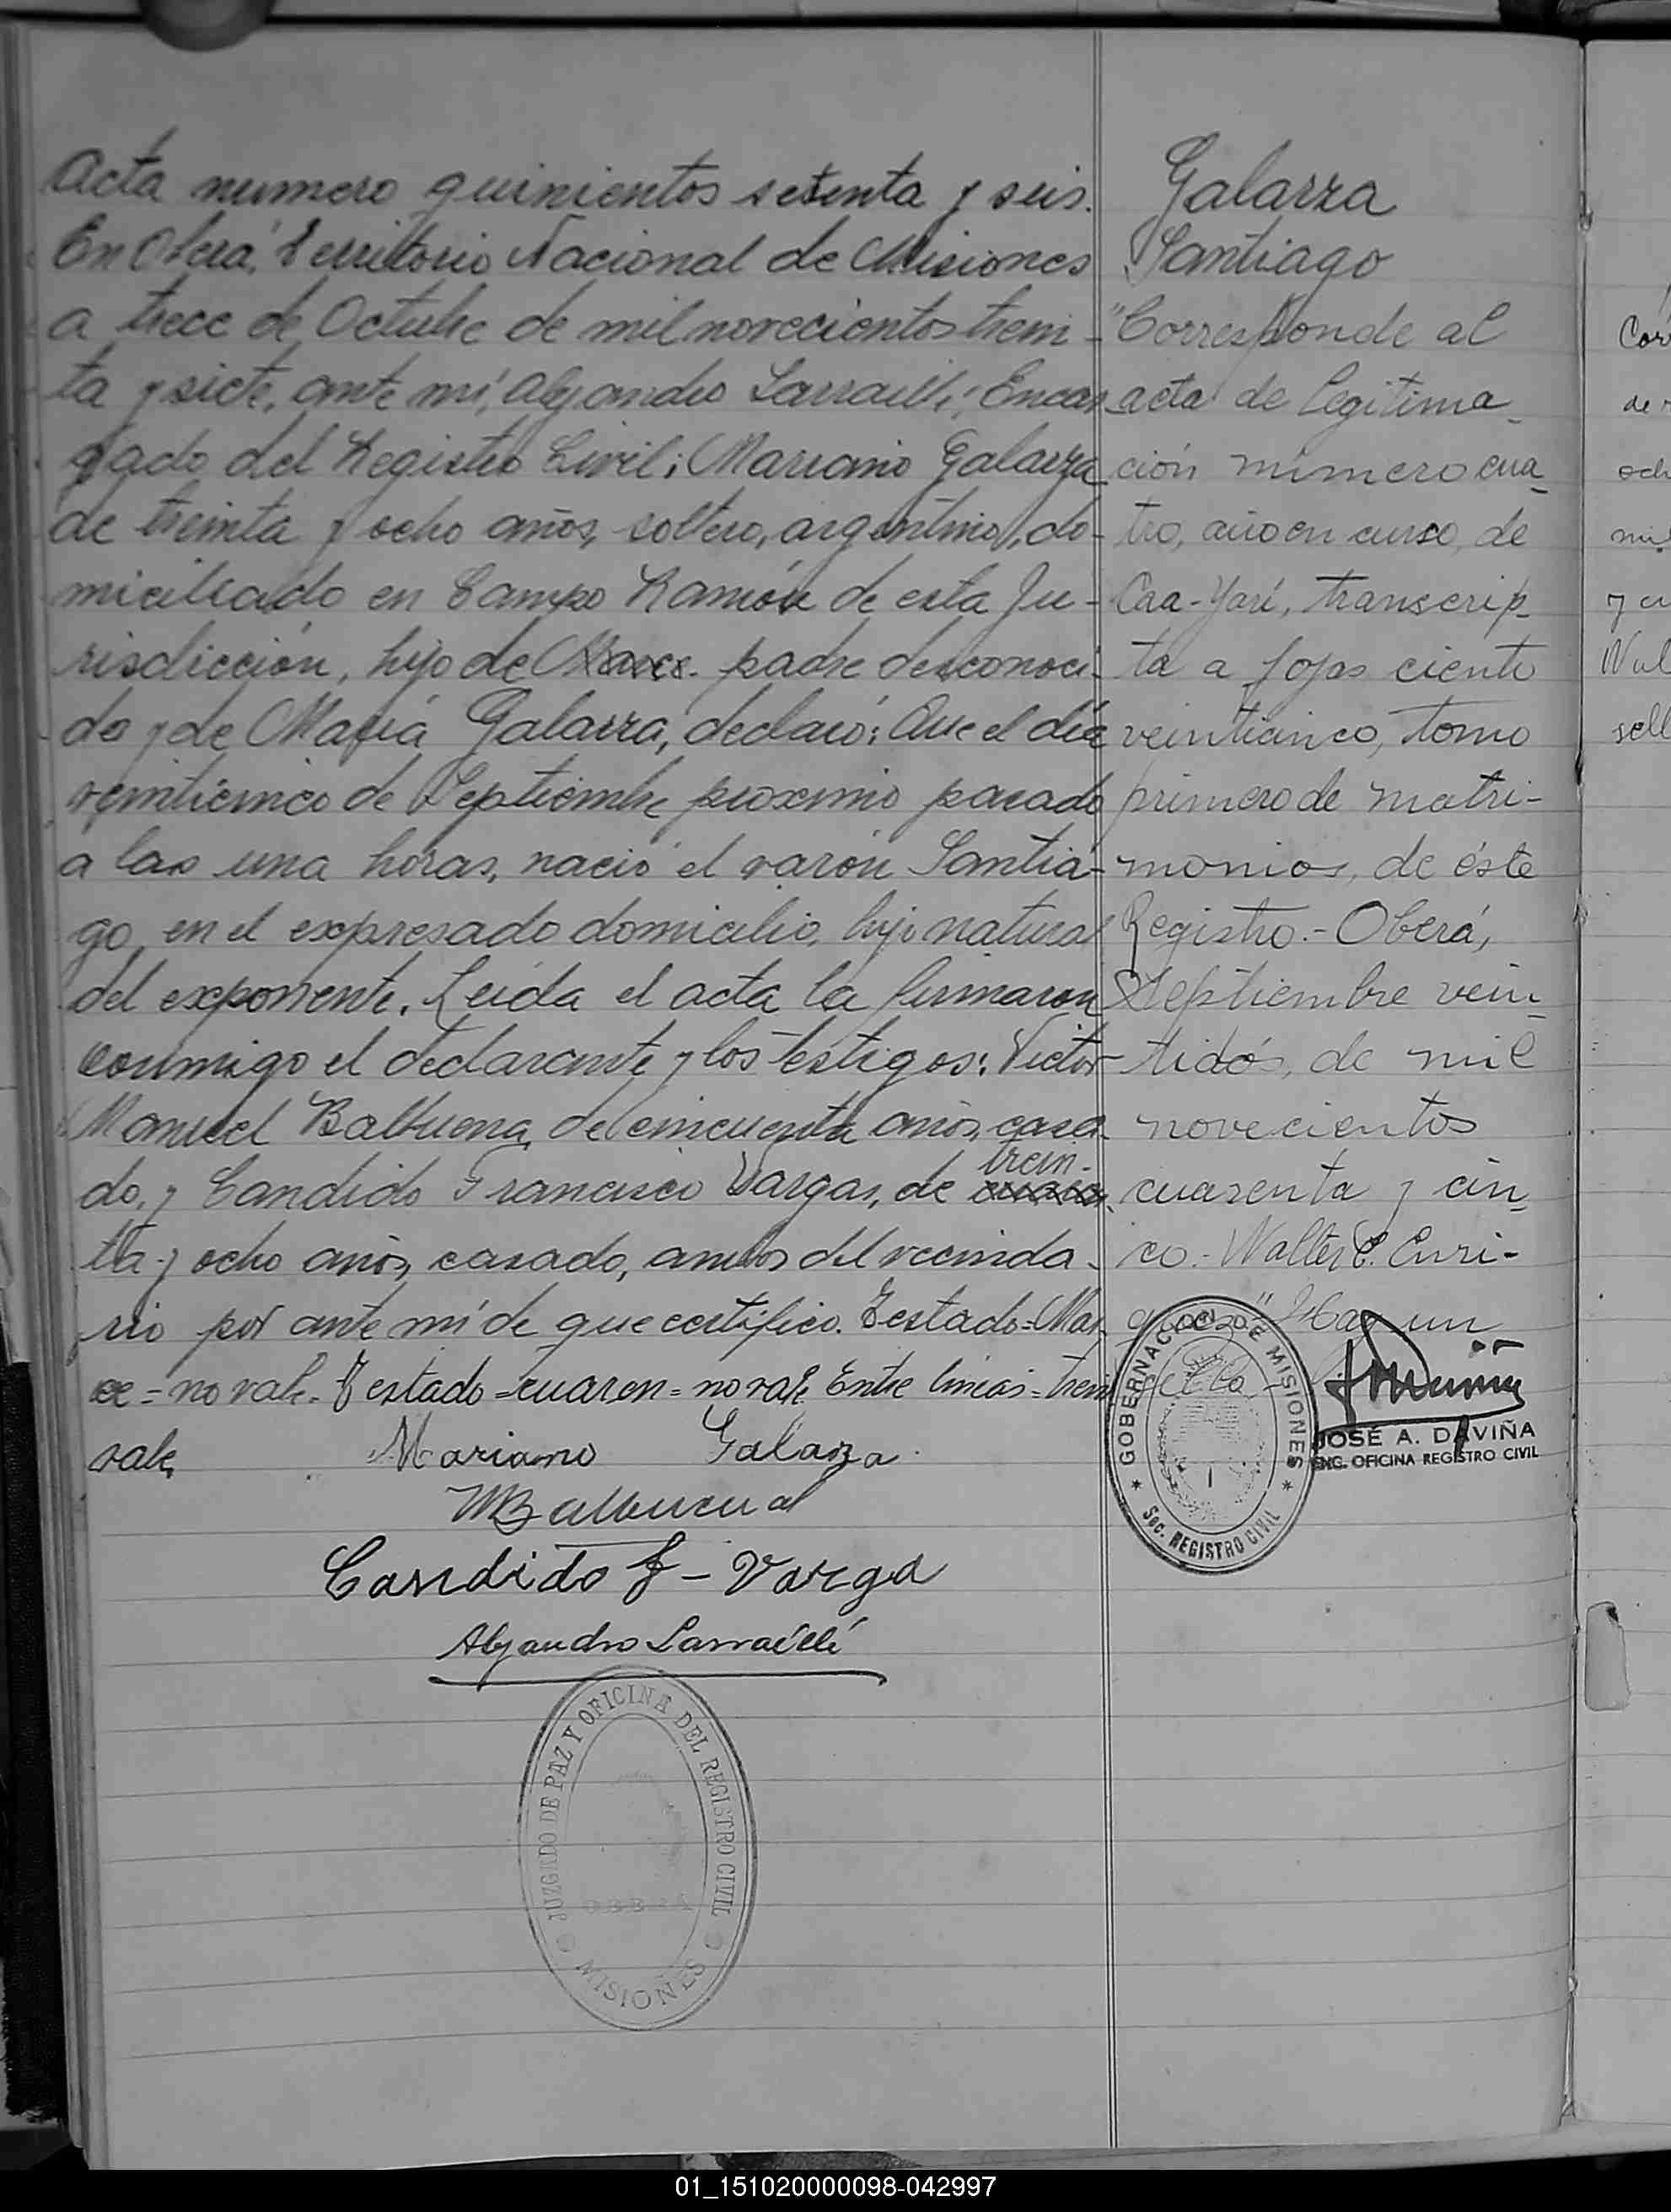 Acta numero quinientos setenta y seis.
En Oberá, Territorio Nacional de Misiones
a trece de Octubre de mil novecientos trein-
ta y siete, ante mí, Alejandro Larraillé, Encar
gado del Registro Civil; Mariano Galarza
de treinta y ocho años, soltero, argentino, do-
miciliado en Campo Ramón de esta Ju-
risdicción, hijo de padre desconoci-
do y de María Galarza, declaró: Que el día
veinticinco de Septiembre proximo pasado
a las una horas, nació el varón Santia-
go, en el expresado domicilio, hijo natural
del exponente. Leida el acta la firmaron
conmigo el declarante y los testigos: Victor
Manuel Balbuena, de cincuenta años, casa-
do, y Candido Francisco Vargas, de trein-
ta y ocho años, casado, ambos del vecinda-
rio por ante mí de que certifico. Testado=Mar
ce=no vale. Testado=cuaren=no vale. Entre lineas=trein
vale.
Mariano Galarza
MBalbuena
Candido F-Varga
Alejandro Larraillé
JUZGADO DE PAZ Y OFICINA DEL REGISTRO CIVIL
MISIONES
Galarza
Santiago
"Corresponde al
acta de legitima-
ción número cua-
tro, año en curso, de
Caa-Yarí, transcrip-
ta a fojas ciento
veinticinco, tomo
primero de matri-
monios, de éste
Registro.- Oberá,
Septiembre vein-
tidós, de mil
novecientos
cuarenta y cin-
co.- Walter C. Enri-
quez" Hay un
sello
GOBERNACION DE MISIONES
Sec. REGISTRO CIVIL
JOSÉ A. DAVIÑA
ENC. OFICINA REGISTRO CIVIL
Cor
de
och
mil
y cu
Wal
sell
01_151020000098-042997